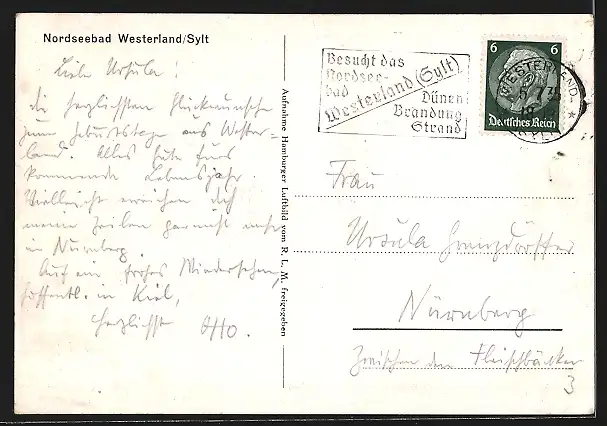 Nordseebad Westerland/Sylt
Liebe Ursula!
die herzlichsten Glückwünsche
zum Geburtstage aus Wester-
land. Alles Gute fürs
kommende Lebensjahr.
Vielleicht erreichen dich
meine Zeilen gar nicht mehr
in Nürnberg.
Auf ein frohes Wiedersehen,
hoffentl. in Kiel,
herzlichst Otto.
Aufnahme Hamburger Luftbild vom R. L. M. freigegeben
Besucht das
Nordsee-
bad
Westerland (Sylt)
Dünen
Brandung
Strand
6 6
Deutsches Reich
WESTERLAND
Frau
Ursula
Nürnberg
Zwischen den Fleischbänken
3